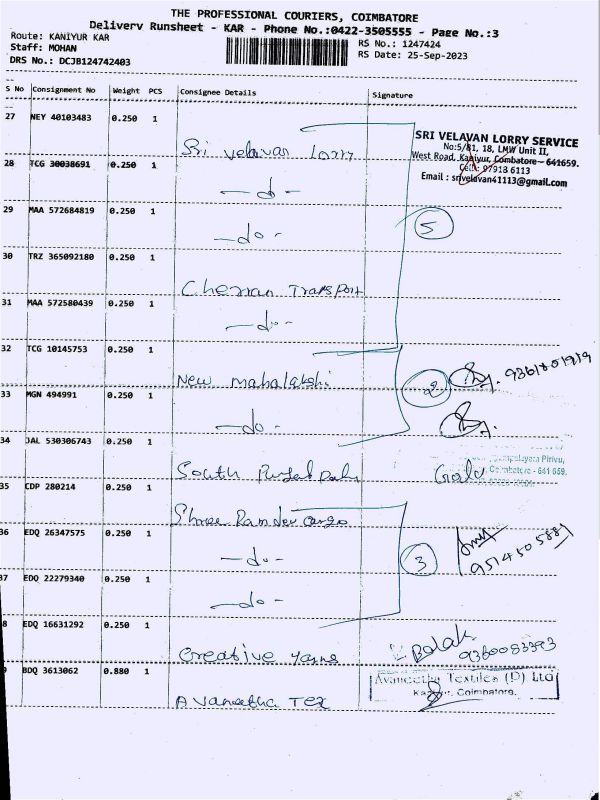 THE PROFESSIONAL COURIERS, COIMBATORE
Delivery Runsheet - KAR - Phone No.:0422-3505555 - Page No.:3
Route: KANIYUR KAR
RS No.: 1247424
Staff: MOHAN
RS Date: 25-Sep-2023
DRS No.: DCJB124742403
S No Consignment No Weight PCS Consignee Details Signature
27 NEY 40103483 0.250 1
Sri velavan lorry
SRI VELAVAN LORRY SERVICE
No:5/81, 18, LMW Unit II,
West Road, Kaniyur, Combatore - 641659.
Cell: 97918 6113
Email : srivelavan41113@gmail.com
28 TCG 30038691 0.250 1
-do-
29 MAA 572684819 0.250 1
-do-
5
30 TRZ 365092180 0.250 1
Cheran Transport
31 MAA 572580439 0.250 1
-do-
32 TCG 10145753 0.250 1
New mahalakshi
2
33 MGN 494991 0.250 1
-do-
34 JAL 530306743 0.250 1
South
Pirivu,
Coimbatore - 641 659.
35 CDP 280214 0.250 1
Shree Ramdev cargo
36 EDQ 26347575 0.250 1
-do-
3
9514505881
37 EDQ 22279340 0.250 1
-do-
8 EDQ 16631292 0.250 1
Creative yarns
Balak
9360083393
9 BDQ 3613062 0.880 1
Avaneetha Tex
Avaneetha Textiles (P) Ltd
Kaniyur, Coimbatore.